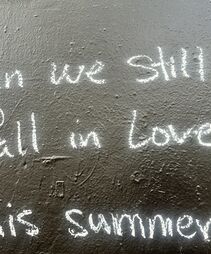 an we still
fall in Love
his summer